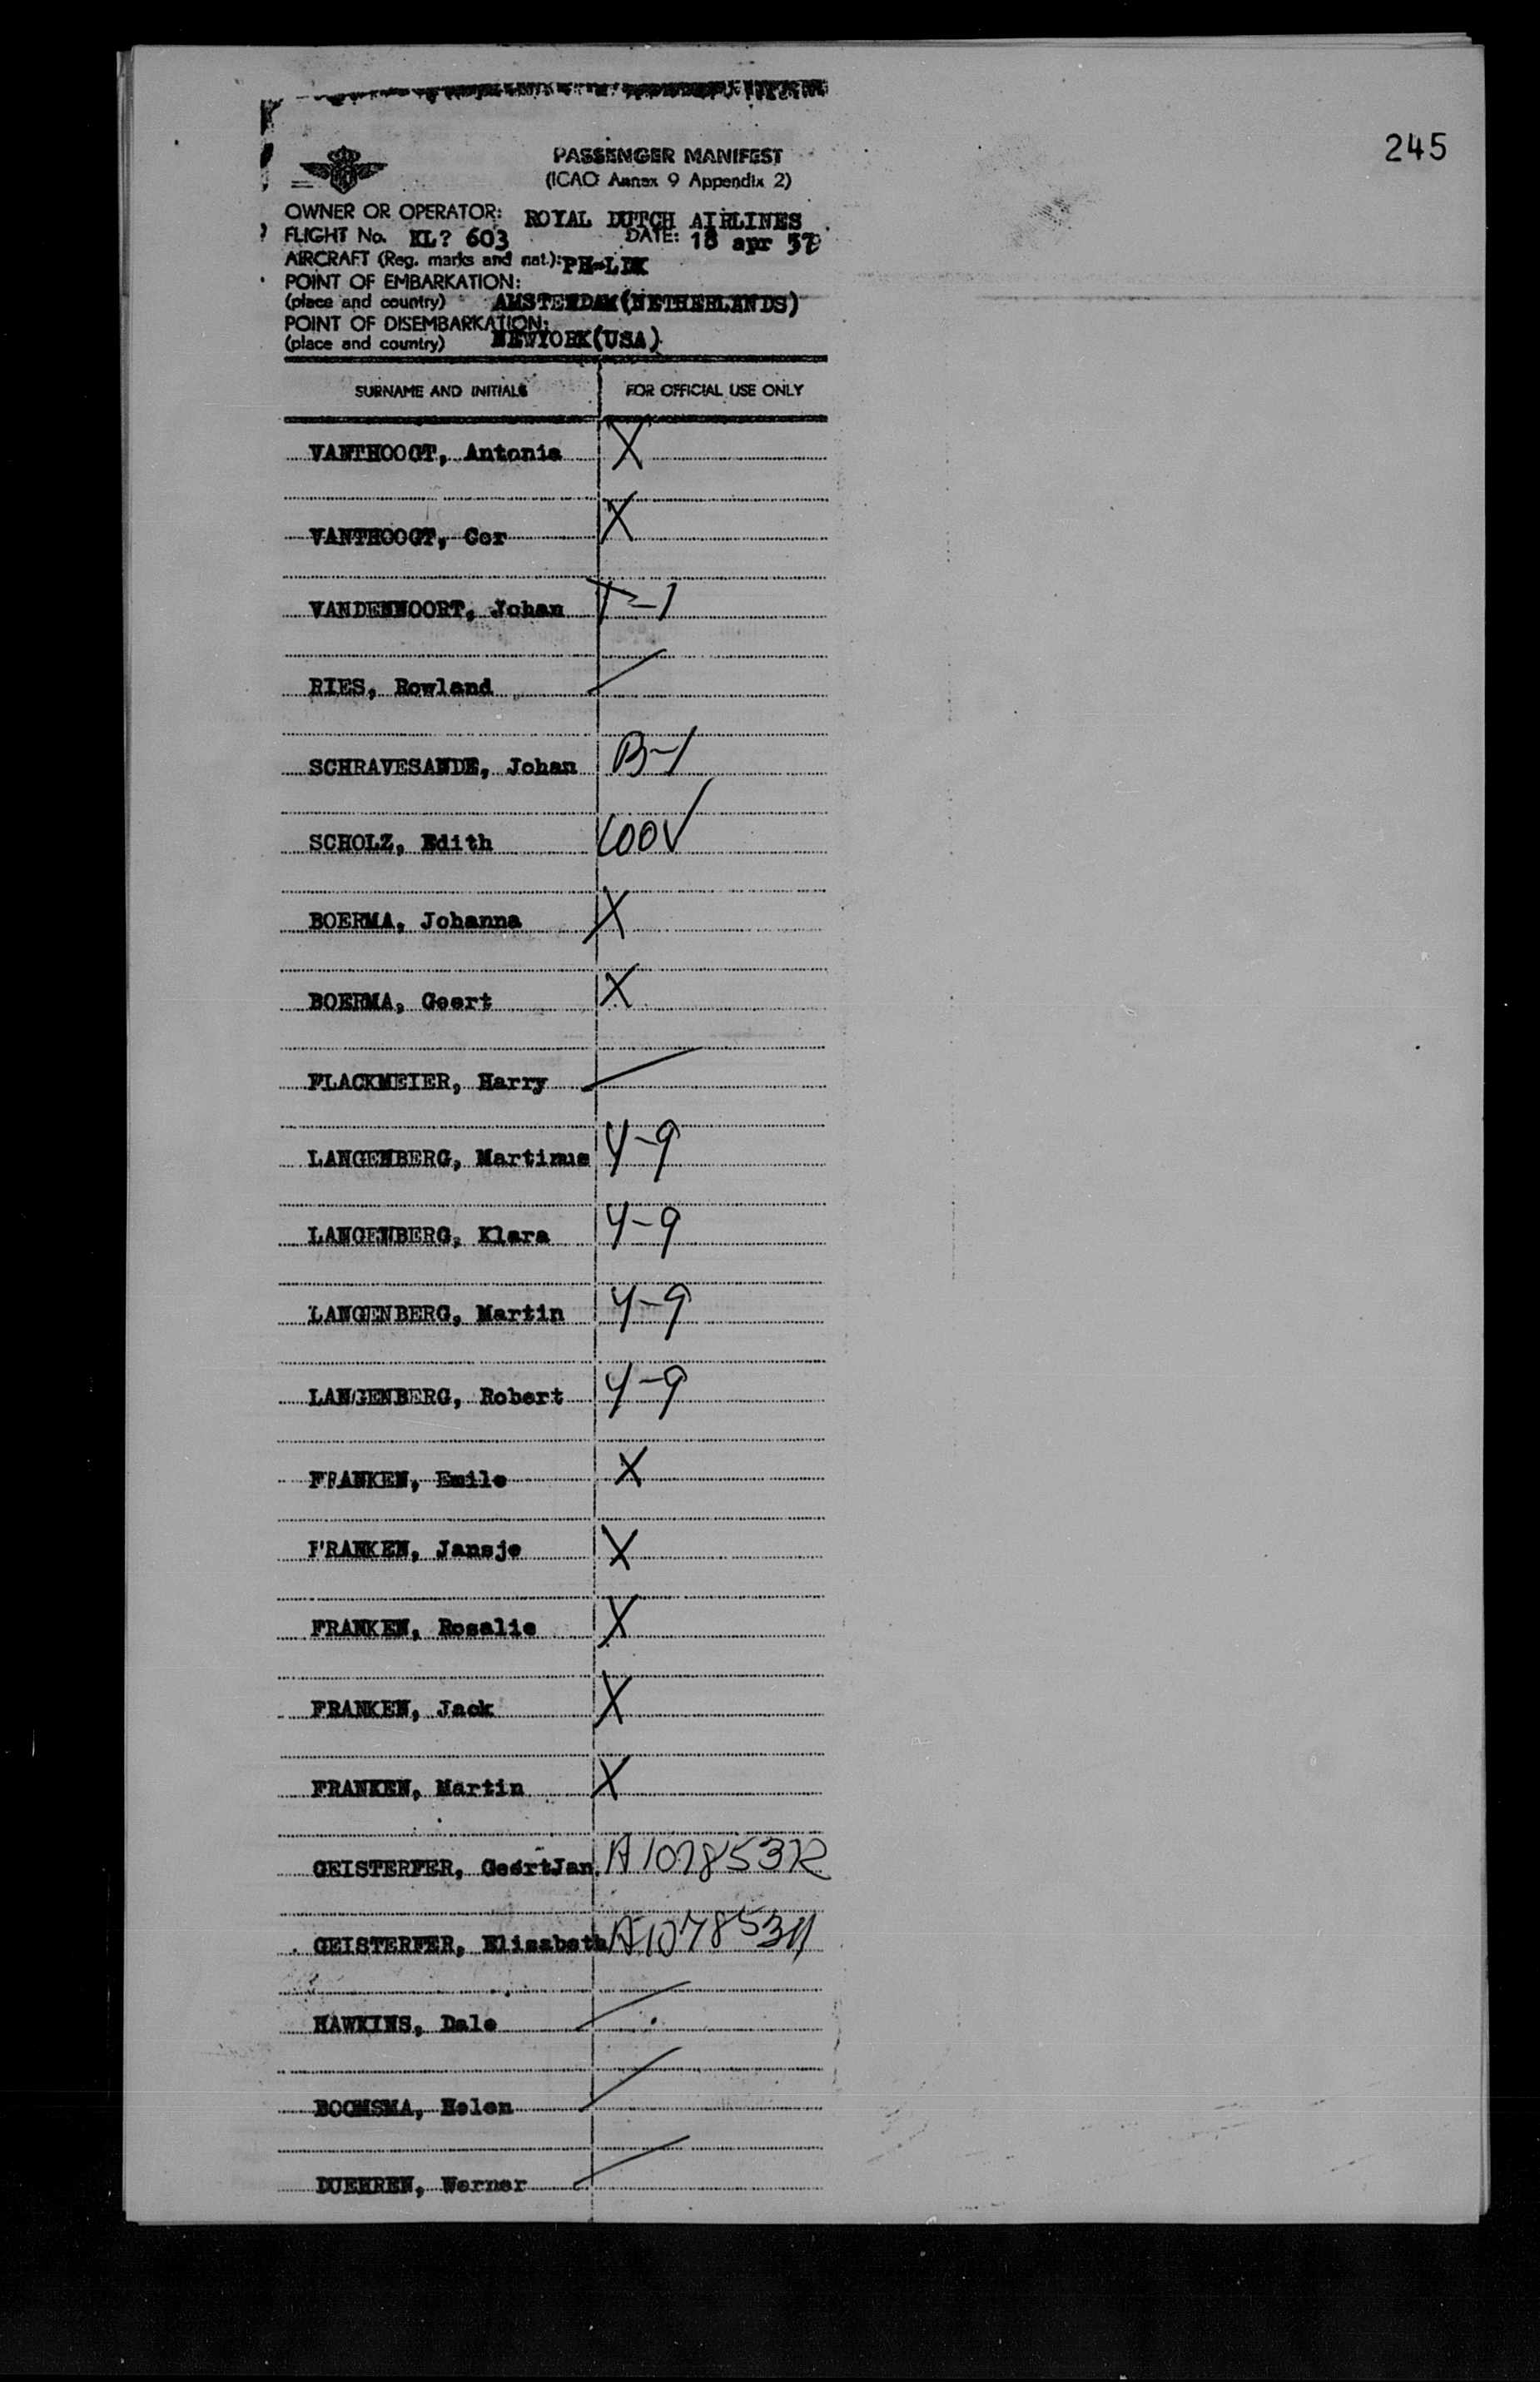 245
PASSENGER MANIFEST
(ICAO Annex 9 Appendix 2)
OWNER OR OPERATOR: ROYAL DUTCH AIRLINES
FLIGHT No. KL? 603 DATE: 18 apr 57
AIRCRAFT (Reg. marks and nat.):
POINT OF EMBARKATION:
(place and country) AMSTERDAM(NETHERLANDS)
POINT OF DISEMBARKATION:
(place and country) NEWYORK(USA)
SURNAME AND INITIALS FOR OFFICIAL USE ONLY
VANTHOOGT, Antonia X
VANTHOOGT, Cor X
VANDENNOORT, Johan T-1
RIES, Rowland
SCHRAVESANDE, Johan B-1
SCHOLZ, Edith
BOERMA, Johanna X
BOERMA, Geert X
FLACKMEIER, Harry
LANGENBERG, Martinus 4-9
LANGENBERG, Klara 4-9
LANGENBERG, Martin 4-9
LANGENBERG, Robert 4-9
FRANKEN, Emile X
FRANKEN, Jansje X
FRANKEN, Rosalie X
FRANKEN, Jack X
FRANKEN, Martin X
GEISTERFER, GeertJan.
GEISTERFER, Elisabeth
HAWKINS, Dale
BOOMSMA, Helen
DUEHREN, Werner